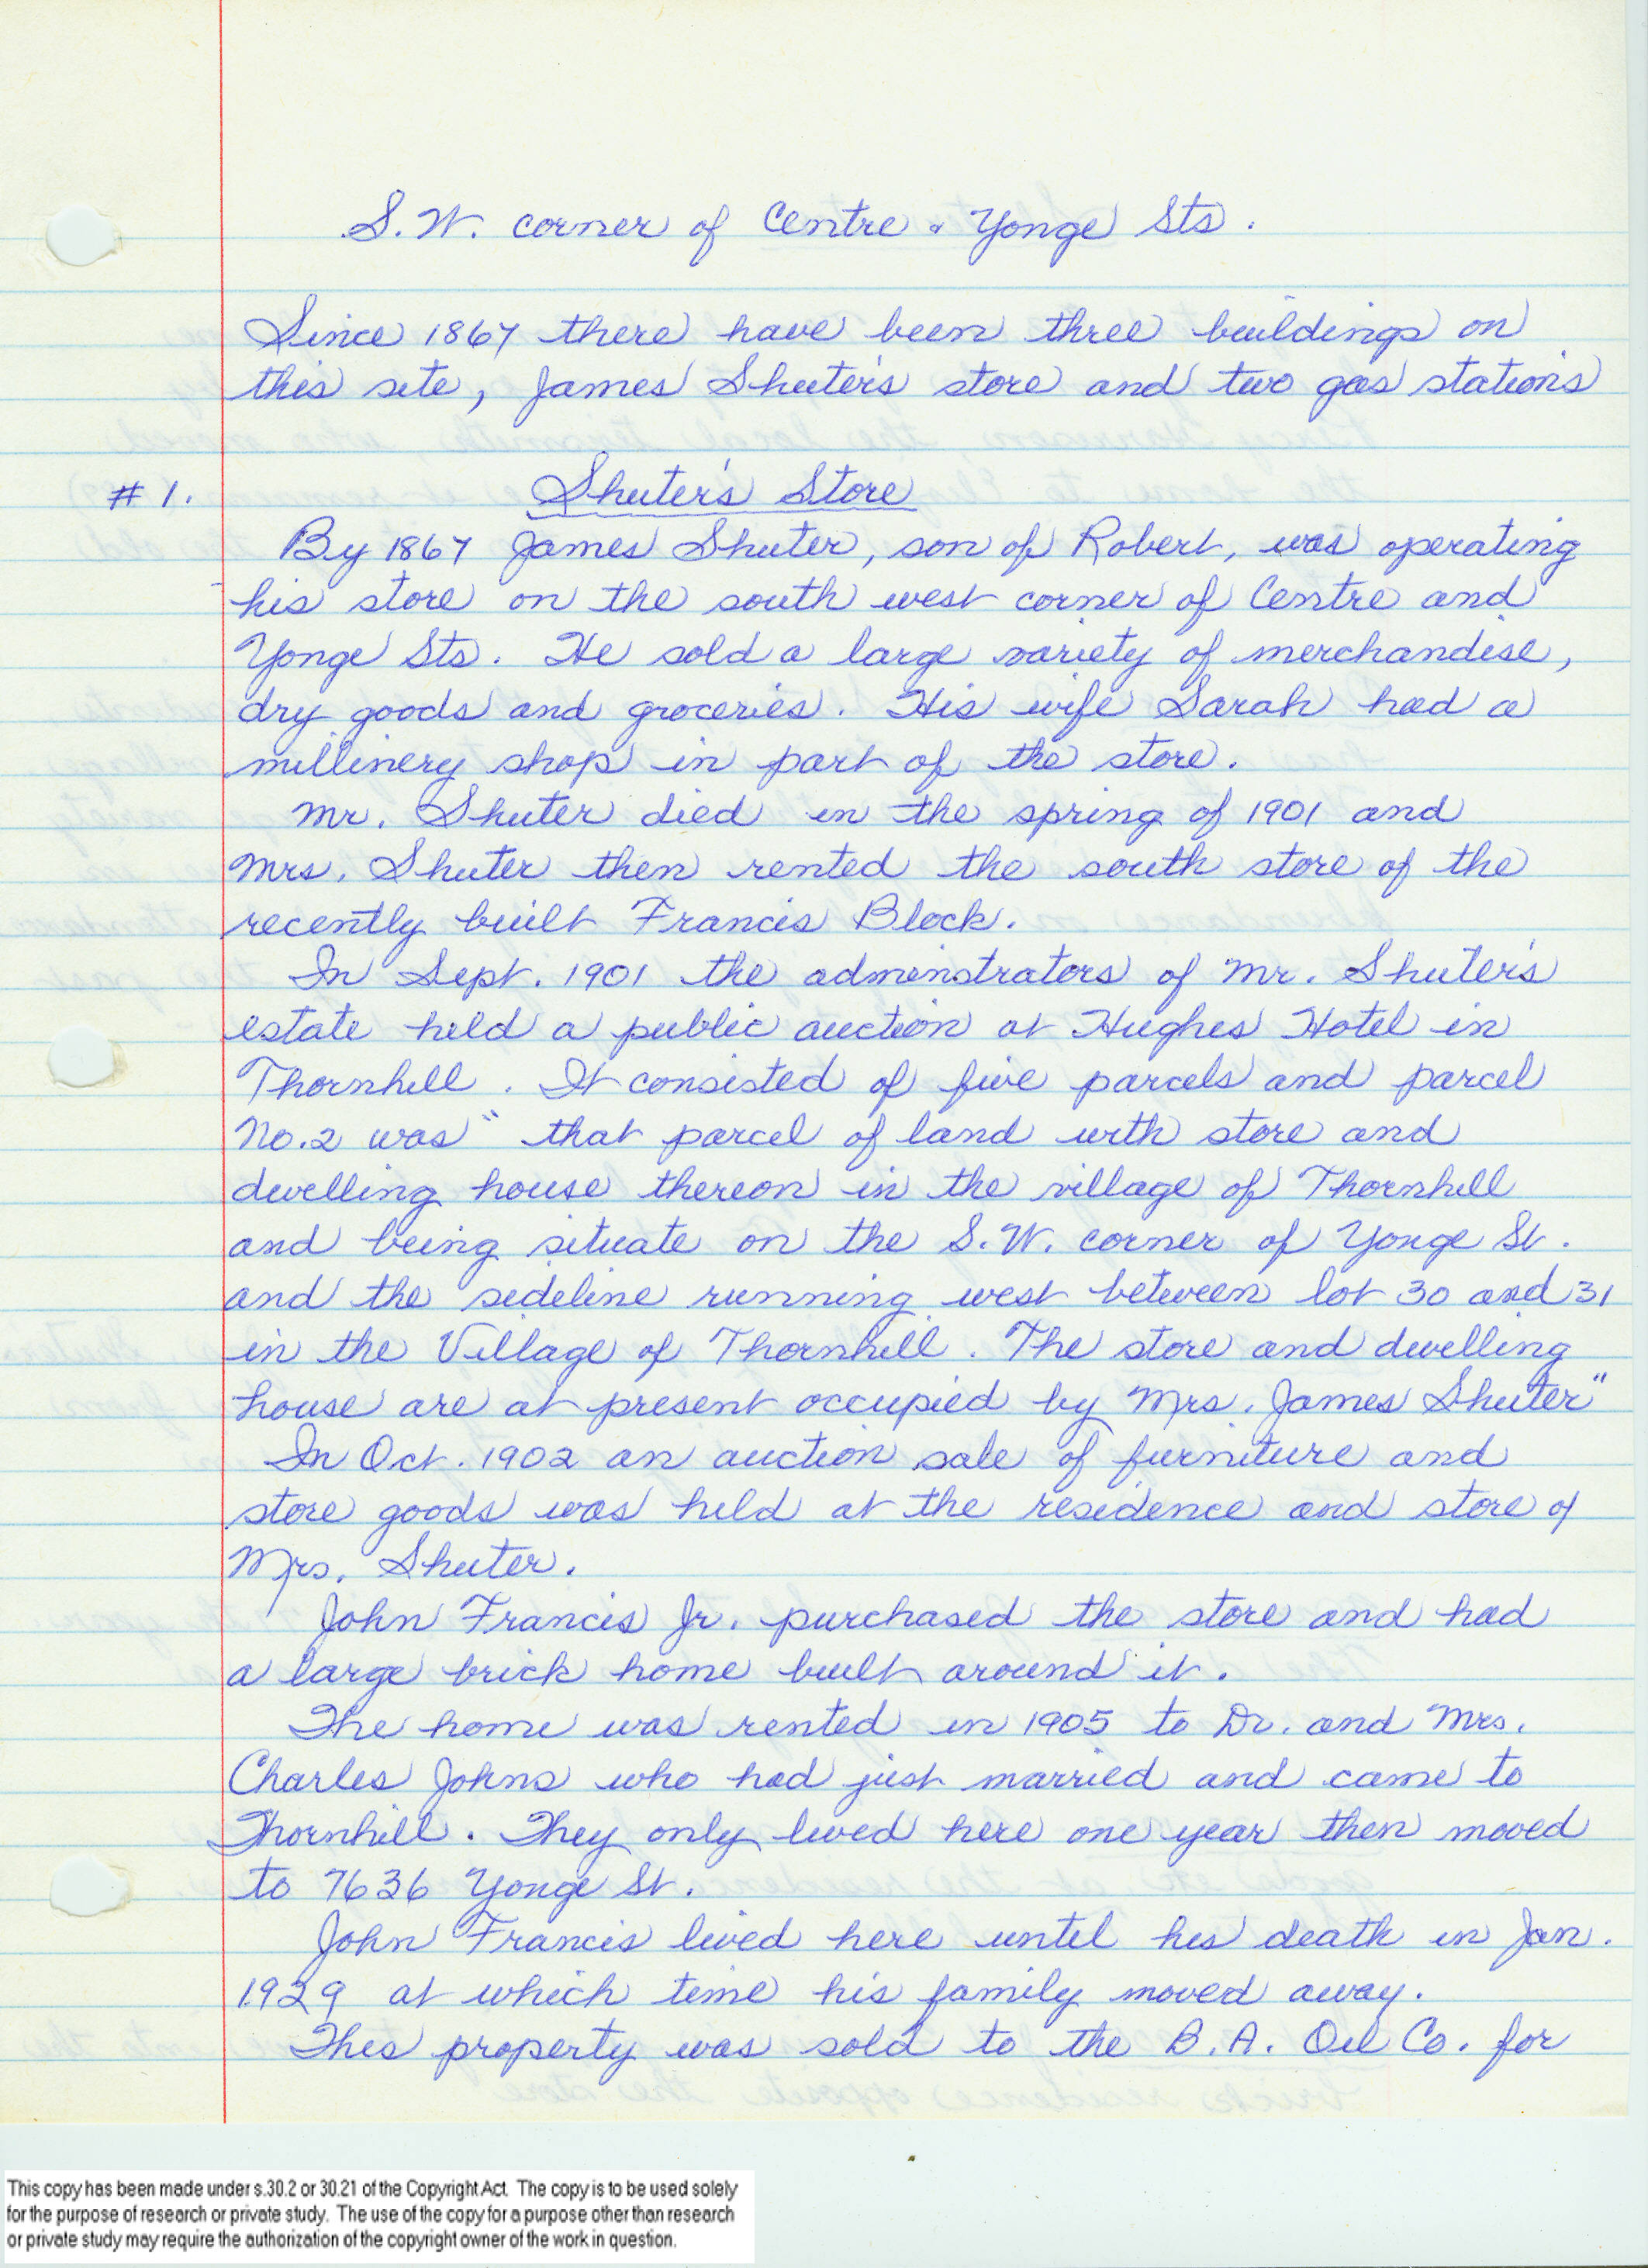 S.W. corner of Centre & Yonge Sts.
Since 1867 there have been three buildings on
this site, James Shuter's store and two gas stations
# 1. Shuter's Store
By 1867 James Shuter, son of Robert, was operating
his store on the south west corner of Centre and
Yonge Sts. He sold a large variety of merchandise,
dry goods and groceries. His wife Sarah had a
millinery shop in part of the store.
Mr. Shuter died in the spring of 1901 and
Mrs. Shuter then rented the south store of the
recently built Francis Block.
In Sept. 1901 the adminstrators of Mr. Shuter's
estate held a public auction at Hughes Hotel in
Thornhill. It consisted of five parcels and parcel
No. 2 was "that parcel of land with store and
dwelling house thereon in the village of Thornhill
and being situate on the S.W. corner of Yonge St.
and the sideline running west between lot 30 and 31
in the Village of Thornhill. The store and dwelling
house are at present occupied by Mrs. James Shuter"
In Oct. 1902 an auction sale of furniture and
store goods was held at the residence and store of
Mrs. Shuter.
John Francis Jr. purchased the store and had
a large brick home built around it.
The home was rented in 1905 to Dr. and Mrs.
Charles Johns who had just married and came to
Thornhill. They only lived here one year then moved
to 7636 Yonge St.
John Francis lived here until his death in Jan.
1929 at which time his family moved away.
This property was sold to the B.A. Oil Co. for
This copy has been made under s.30.2 or 30.21 of the Copyright Act. The copy is to be used solely
for the purpose of research or private study. The use of the copy for a purpose other than research
or private study may require the authorization of the copyright owner of the work in question.